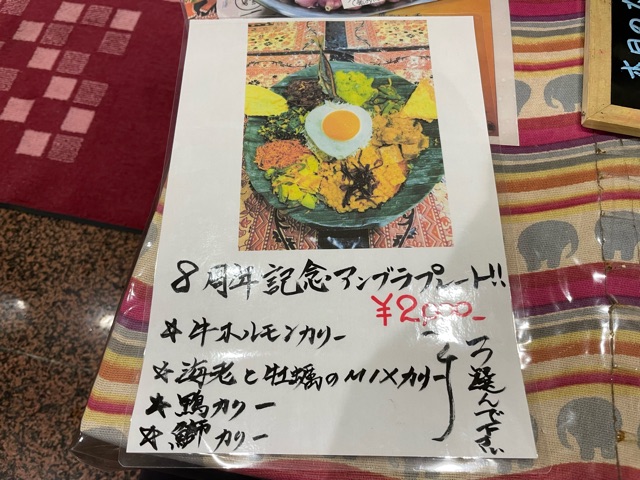 8周年記念アンブラプレート!!
¥2,000-
☆牛ホルモンカリー
☆海老と牡蠣のMIXカリー
☆鴨カリー
☆鰤カリー
1つ選んで下さい
本日の